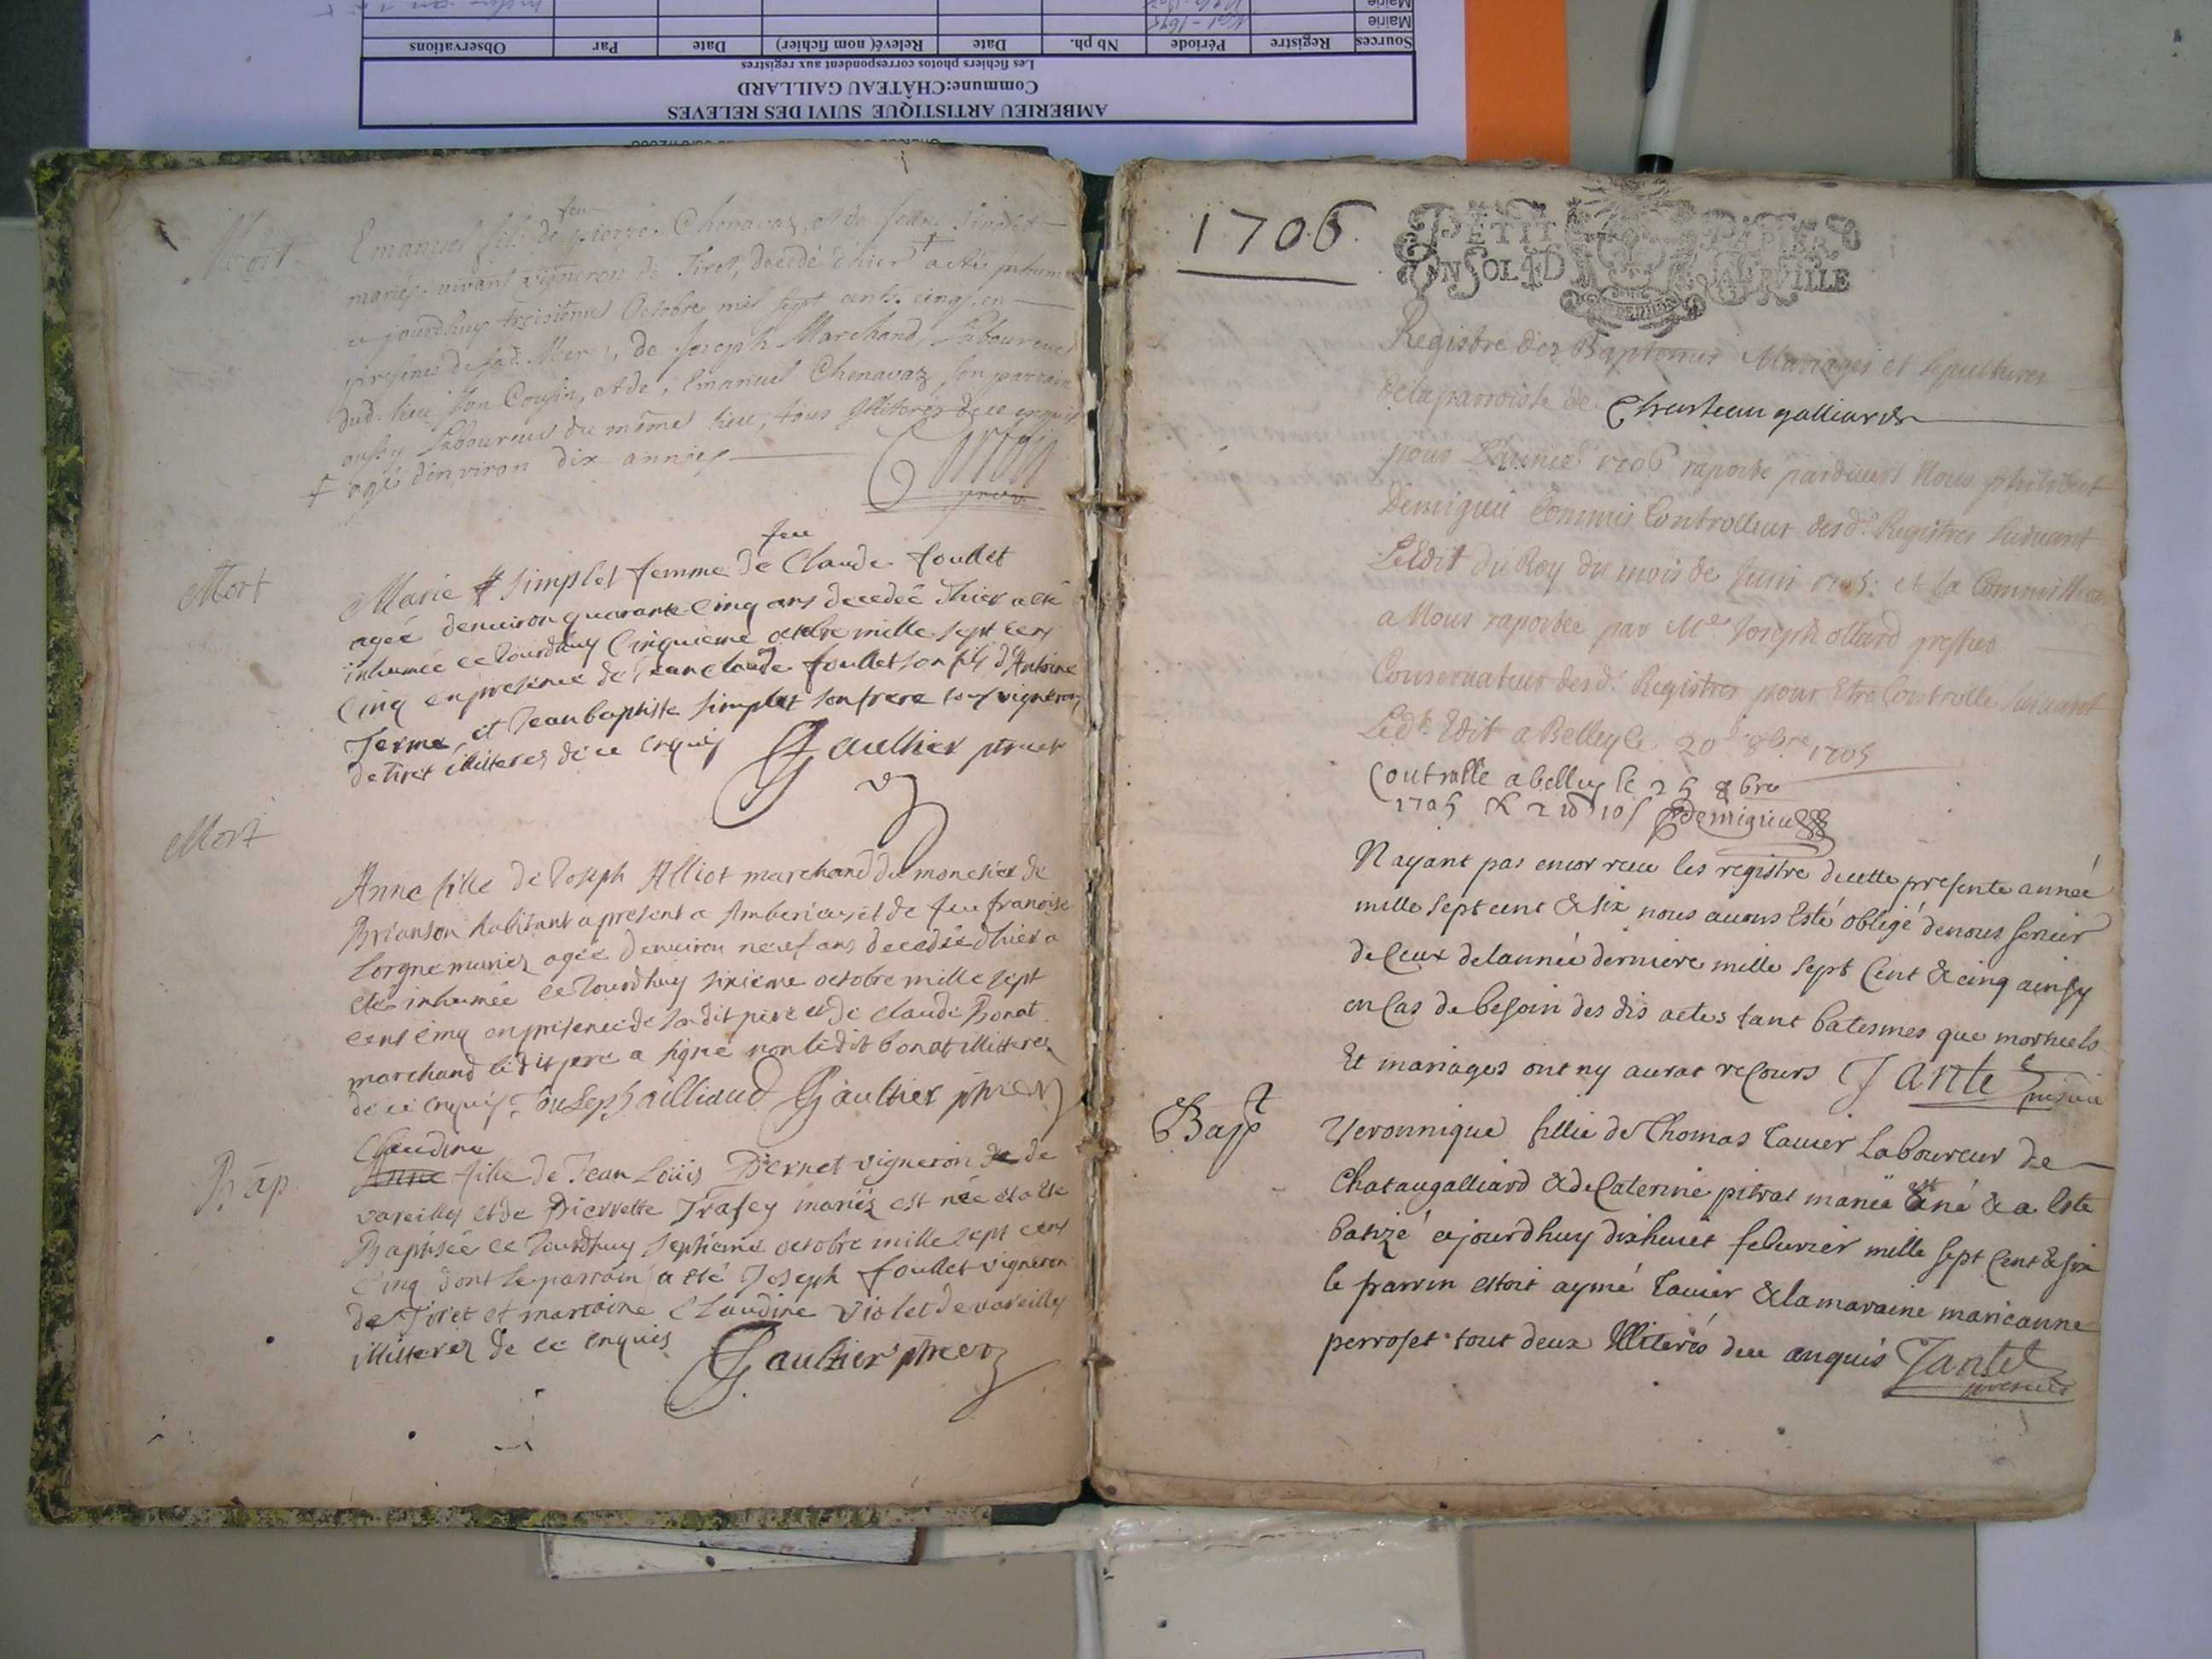 AMBERIEU ARTISTIQUE SUIVI DES RELEVES
Commune:CHÂTEAU GAILLARD
Les fichiers photos correspondent aux registres
Sources Registre Période Nb ph. Date Relevé( nom fichier) Date Par Observations
Mairie
Mairie
Mort
feu
Emanuel fils de pierre Chenavaz, et de
mariés, vivant vigneron de Tiret, decedé d'hier † a été inhumé
ce jourdhuy troisiême Octobre mil sept cents cinq, en
presence de sad. Mere, de Joseph Marchand, Laboureur
dud. lieu son Cousin, et de Emanuel Chenavaz son parrain
aussy Laboureur du même lieu, tous illiterés de ce enquis
† agé d'environ dix années
Mort
feu
Marie simplet femme de Claude foullet
agée denuiron quarante Cinq ans decedée dhier a été
inhumée ce Jourdhuy Cinquieme octobre mille sept cens
Cinq en presence de Jean claude foullet son fils d'Antoine
Ferme, et Jean baptiste simplet son frere tous vignerons
de tiret illitteres de ce enquis Gaulthier
Mort
Anne fille de Joseph Alliot marchand du monetier de
Brianson habitant a present a Amberieu et de feu françoise
Lorgne mariez agée denuiron neuf ans decedée dhier a
eté inhumée ce Jourdhuy sixieme octobre mille sept
cent cinq en presence de son dit pere et de claude Bonat
marchand le dit pere a signé non le dit bonat illitteres
de ce enquis Jouseph ailliaud Gaulthier
Bap
Claudine
Anne fille de Jean Loüis Pernet vigneron de de
vareilles et de Pierrette Trafey mariéz est née et a eté
Baptisée ce Jourdhuy septieme octobre mille sept cens
Cinq dont le parrain a eté Joseph foullet vigneron
de Tiret et marraine Claudine violet de vareilles
illitteréz de ce enquis Gaulthier
1706
PETIT PAPIER
UN SOL LA FEUILLE
Registre des Baptemes Mariages et sepultures
de la parroisse de Chasteau galliard
pour L'année 1706 raporté pardeuers Nous philibert
Demigieu Commis Controlleur desd. Registres suiuant
L'Edit du Roy du mois de Juin 1705: et la Commission
a Nous raportée par Me Joseph ollard
Conseruateur desd. Registres pour Etre Controllé suiuant
Led. Edit a Belley le 20e 8bre 1705
Controllé a belley le 25 8bre
1705 Demigieu
N ayant pas encor receu les registre de cette presente année
mille sept cent & six nous auons Esté obligé de nous seruir
de Ceux de lannée derniere mille sept Cent & cinq ainsy
en Cas de besoin des dis actes tant batesmes que mortuels
Et mariages ont ny aurat recours Jantet
Bapt
Veronnique fillie de Thomas tauier Laboureur de
Chataugalliard & de Caterine pitrat mariéé est né & a Este
batizé cejourdhuy dixhuict feburier mille sept Cent & six
le parrin estoit aymé tauier & la maraine marieanne
perroset tout deux Illiterés de ce anquis Jantet